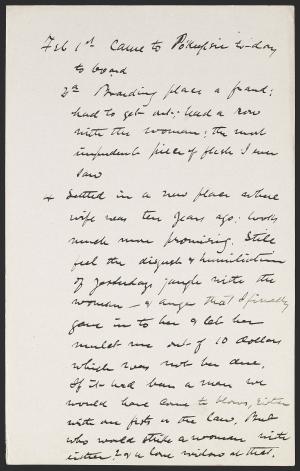 Feb 1st Came to Pokepsie to-day
to board
2d Boarding place a fraud;
had to get out; had a row
with the woman; the most
impudent piece of flesh I ever
saw
4 Settled in a new place where
wife was ten years ago; looks
much more promising. Still
feel the disgust & humiliation
of yesterdays jangle with the
woman — & anger that I finally
gave in to her & let her
mulct me out of 10 dollars
which was not her due.
If it had been a man we
would have come to blows, either
with our fists or the law. But
who would strike a woman with
either? & a lone widow at that.